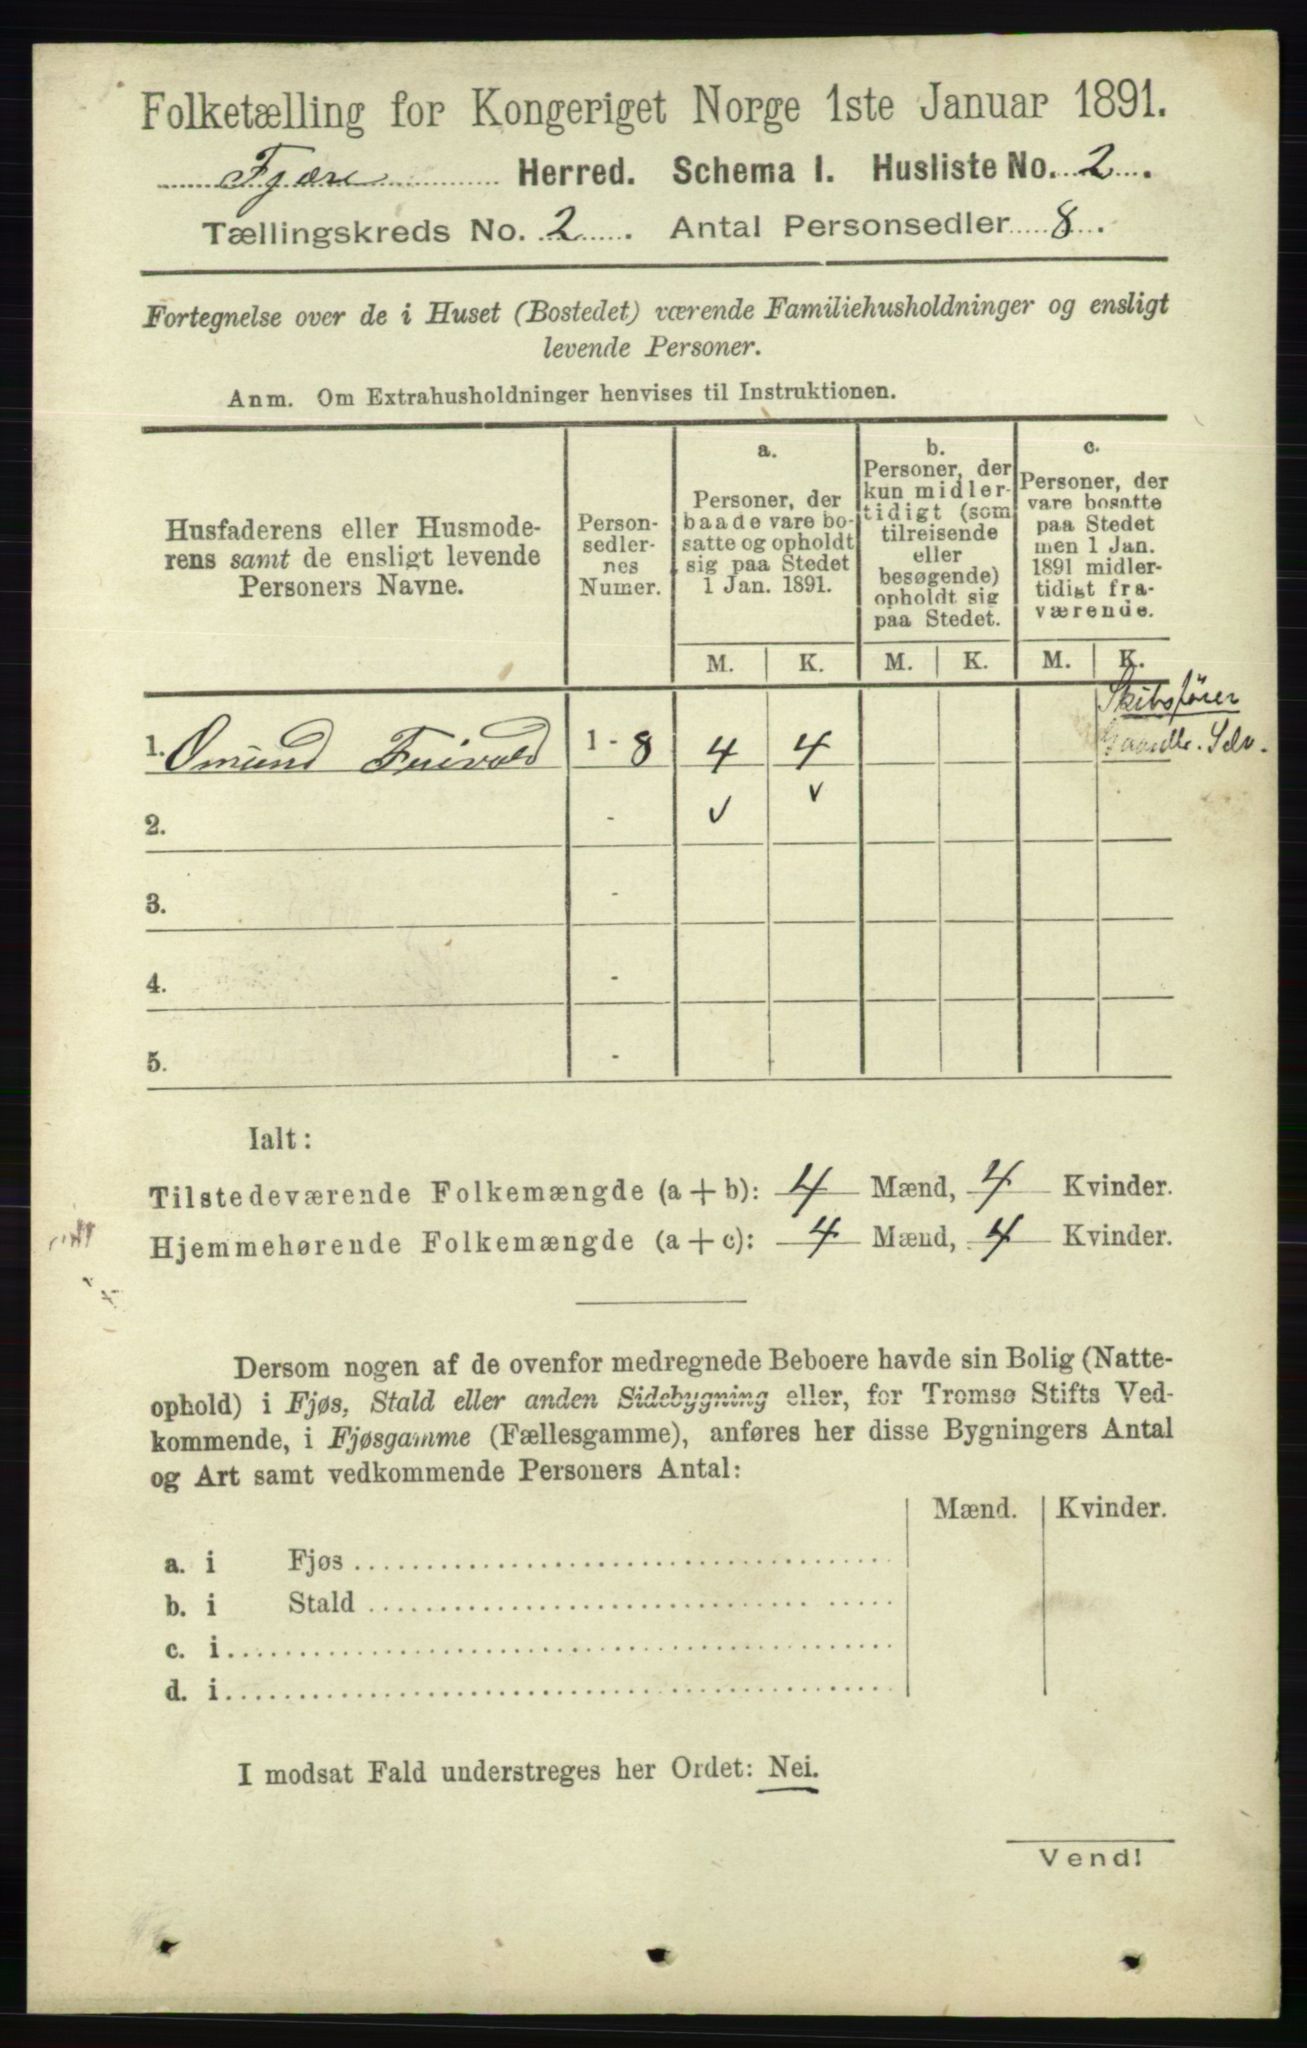 Folketælling for Kongeriget Norge 1ste Januar 1891.
Fjære Herred. Schema I. Husliste No. 2.
Tællingskreds No. 2. Antal Personsedler 8.
Fortegnelse over de i Huset (Bostedet) værende Familiehusholdninger og ensligt
levende Personer.
Anm. Om Extrahusholdninger henvises til Instruktionen.
Husfaderens eller Husmode-
rens samt de ensligt levende
Personers Navne.
Person-
sedler-
nes
Numer.
a.
Personer, der
baade vare bo-
satte og opholdt
sig paa Stedet
1 Jan. 1891.
b.
Personer, der
kun midler-
tidigt (som
tilreisende
eller
besøgende)
opholdt sig
paa Stedet.
c.
Personer, der
vare bosatte
paa Stedet
men 1 Jan.
1891 midler-
tidigt fra-
værende.
M. K. M. K. M. K.
Skibsfører
1. Omund Feivold 1 - 8 4 4 Selv.
2. - ✓ ✓
3. -
4. -
5. -
Ialt:
Tilstedeværende Folkemængde (a + b): 4 Mænd, 4 Kvinder.
Hjemmehørende Folkemængde (a + c): 4 Mænd, 4 Kvinder.
Dersom nogen af de ovenfor medregnede Beboere havde sin Bolig (Natte-
ophold) i Fjøs, Stald eller anden Sidebygning eller, for Tromsø Stifts Ved-
kommende, i Fjøsgamme (Fællesgamme), anføres her disse Bygningers Antal
og Art samt vedkommende Personers Antal:
Mænd. Kvinder.
a. i Fjøs
b. i Stald
c. i
d. i
I modsat Fald understreges her Ordet: Nei.
Vend!